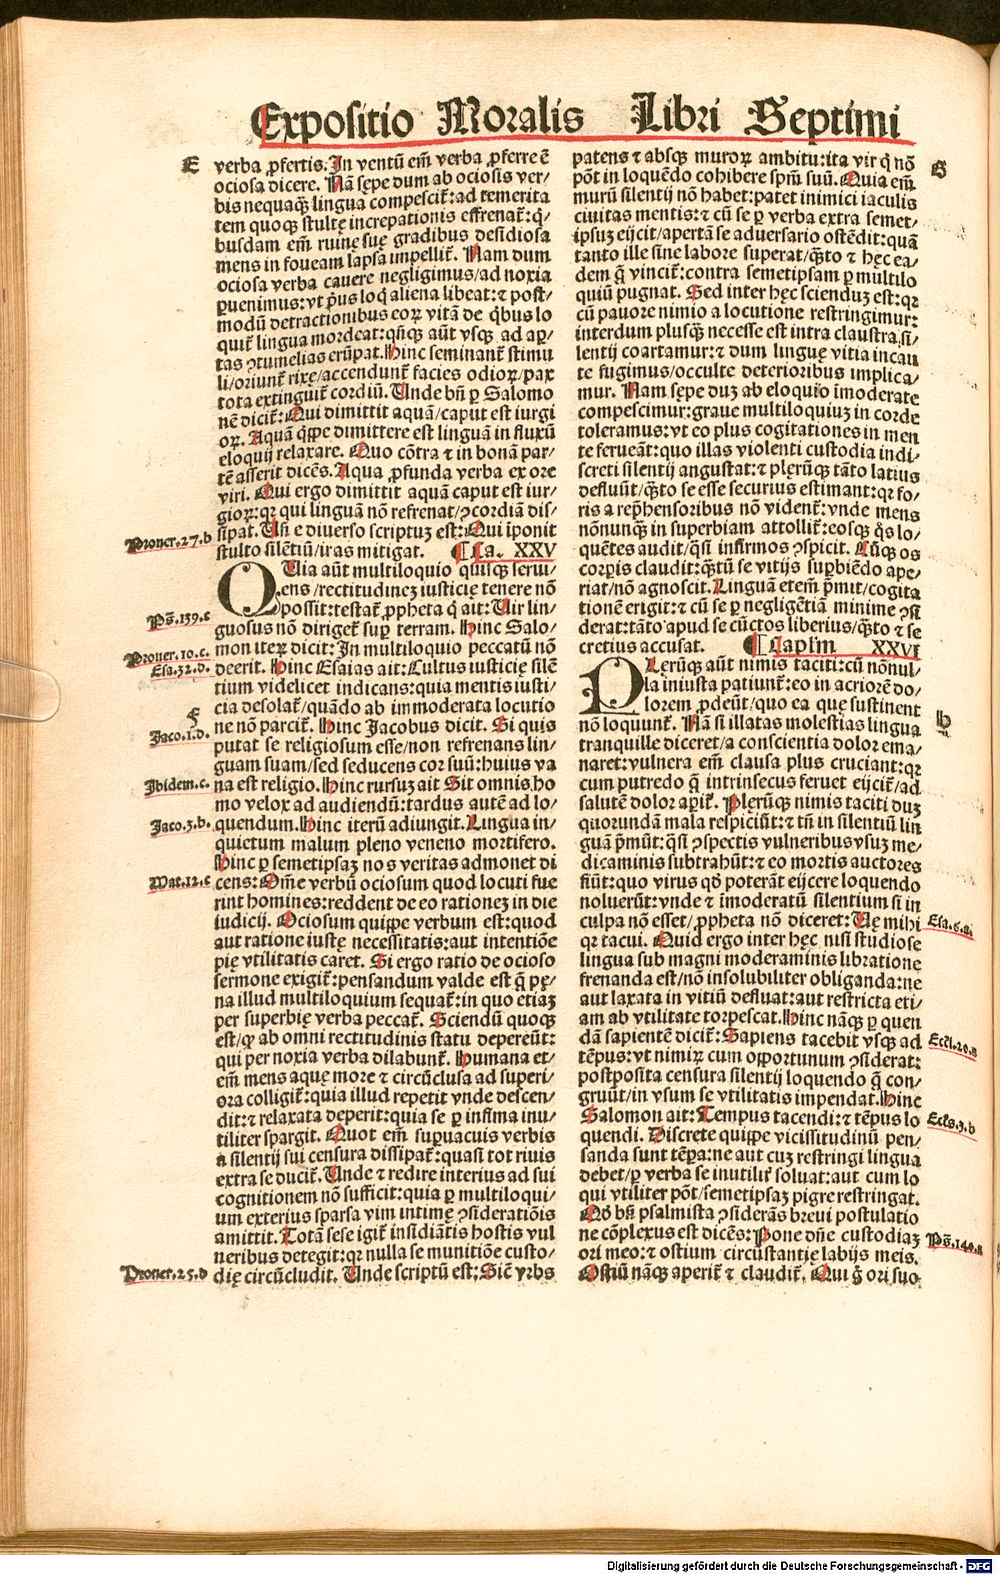 Expositio Moralis Libri Septimi
E
verba ꝓfertis. In ventū em̄ verba ꝓferre ē
ociosa dicere. Nā sępe dum ab ociosis ver/
bis nequaqȝ lingua compescit̄: ad temerita
tem quoqȝ stultę increpationis effrenat̄: q̄/
busdam em̄ ruinę suę gradibus desidiosa
mens in foueam lapsa impellit̄. Nam dum
ociosa verba cauere negligimus/ad noxia
ꝑuenimus: vt p̄us loq̄ aliena libeat: ⁊ post/
modū detractionibus eoꝝ vitā de q̄bus lo
quit̄ lingua mordeat: qn̄qȝ aūt vsqȝ ad aꝑ/
tas ↄtumelias erūpat. Hinc seminant̄ stimu
li/oriunt̄ rixę/accendunt̄ facies odioꝝ/pax
tota extinguit̄ cordiū. Unde bn̄ ꝑ Salomo
nē dicit̄: Qui dimittit aquā/caput est iurgi
oꝝ. Aquā q̄ppe dimittere est linguā in fluxū
eloquij relaxare. Quo cōtra ⁊ in bonā par/
tē asserit dicēs. Aqua ꝓfunda verba ex ore
viri. Qui ergo dimittit aquā caput est iur/
gioꝝ: qꝛ qui linguā nō refrenat/ↄcordiā dis/
sipat. Un̄ e diuerso scriptuȝ est: Qui īponit
Prouer.27.b
stulto silētiū/iras mitigat. ¶ Ca. XXV
QUia aūt multiloquio quisqȝ serui/
ens/rectitudineȝ iusticię tenere nō
possit: testat̄ ꝓpheta q̄ ait: Uir lin/
Ps̄.139.c
guosus nō dirigет̄ suꝑ terram. Hinc Salo/
mon iteꝝ dicit: In multiloquio peccatū nō
Prouer.10.c.
deerit. Hinc Esaias ait: Cultus iusticię silē
Esa.32.d.
tium videlicet indicans: quia mentis iusti/
cia desolat̄/quādo ab immoderata locutio
F
ne nō parcit̄. Hinc Jacobus dicit. Si quis
Jaco.1.d.
putat se religiosum esse/non refrenans lin/
guam suam/sed seducens cor suū: huius va
na est religio. Hinc rursuȝ ait Sit omnis ho
Ibidem.c.
mo velox ad audiendū: tardus autē ad lo/
quendum. Hinc iterū adiungit. Lingua in/
Jaco.3.b.
quietum malum pleno veneno mortifero.
Hinc ꝑ semetipsaȝ nos veritas admonet di
cens: Om̄e verbū ociosum quod locuti fue
Mat.12.c
rint homines: reddent de eo rationeȝ in die
iudicij. Ociosum quippe verbum est: quod
aut ratione iustę necessitatis: aut intentiōe
pię vtilitatis caret. Si ergo ratio de ocioso
sermone exigit̄: pensandum valde est q̄ pę/
na illud multiloquium sequat̄: in quo etiaȝ
per superbię verba peccat̄. Sciendū quoqȝ
est/ꝙ ab omni rectitudinis statu depereūt:
qui per noxia verba dilabunt̄. Humana et/
em̄ mens aquę more ⁊ circūclusa ad superi/
ora colligit̄: quia illud repetit vnde descen/
dit: ⁊ relaxata deperit: quia se ꝑ infima inu/
tiliter spargit. Quot em̄ suꝑuacuis verbis
a silentij sui censura dissipat̄: quasi tot riuis
extra se ducit̄. Unde ⁊ redire interius ad sui
cognitionem nō sufficit: quia ꝑ multiloqui/
um exterius sparsa vim intimę ↄsideratiōis
amittit. Totā sese igit̄ insidiātis hostis vul
neribus detegit: qꝛ nulla se munitiōe custo/
Prouer.25.d
dię circūcludit. Unde scriptū est; Sic̄ vrbs
patens ⁊ absqȝ muroꝝ ambitu: ita vir q̄ nō
G
pōt in loquēdo cohibere spm̄ suū. Quia em̄
murū silentij nō habet: patet inimici iaculis
ciuitas mentis: ⁊ cū se ꝑ verba extra semet/
ipsuȝ eijcit/apertā se aduersario ostēdit: quā
tanto ille sine labore superat/q̄sto ⁊ hęc ea/
dem q̄ vincit̄: contra semetipsam ꝑ multilo
quiū pugnat. Sed inter hęc sciendȝ est: qꝛ
cū pauore nimio a locutione restringimur:
interdum plusqȝ necesse est intra claustra si/
lentij coartamur: ⁊ dum linguę vitia incau
te fugimus/occulte deterioribus implica/
mur. Nam sępe duȝ ab eloquio īmoderate
compescimur: graue multiloquiuȝ in corde
toleramus: vt eo plus cogitationes in men
te ferueāt: quo illas violenti custodia indi/
screti silentij angustat: ⁊ plęrūqȝ tāto latius
defluūt/q̄sto se esse securius estimant: qꝛ fo/
ris a rep̄hensoribus nō vident̄: vnde mens
nōnunqȝ in superbiam attollit̄: eosqȝ q̄s lo/
quētes audit/q̄si infirmos ↄspicit. Cūqȝ os
corꝑis claudit: q̄stū se vitijs suꝑbiēdo ape/
riat/nō agnoscit. Linguā etem̄ p̄mit/cogita
tionē erigit: ⁊ cū se ꝑ negligētiā minime ↄsi
derat: tāto apud se cūctos liberius/q̄sto ⁊ se
cretius accusat. ¶ Capl̄m XXVI
PLęrūqȝ aūt nimis taciti: cū nōnul/
la iniusta patiunt̄: eo in acriorē do/
lorem ꝓdeūt/quo ea quę sustinent
h
nō loquunt̄. Nā si illatas molestias lingua
tranquille diceret/a conscientia dolor ema/
naret: vulnera em̄ clausa plus cruciant: qꝛ
cum putredo q̄ intrinsecus feruet eijcit̄/ad
salutē dolor aꝑit̄. Plerūqȝ nimis taciti duȝ
quorundā mala respiciūt: ⁊ tn̄ in silentiū lin
guā p̄mūt: q̄si ↄspectis vulneribus vsuȝ me/
dicaminis subtrahūt: ⁊ eo mortis auctores
fiūt: quo virus qd̄ poterāt eijcere loquendo
noluerūt: vnde ⁊ īmoderatū silentium si in
culpa nō esset/ꝓpheta nō diceret: Uę mihi
Esa.6.a.
qꝛ tacui. Quid ergo inter hęc nisi studiose
lingua sub magni moderaminis libratione
frenanda est/nō insolubiliter obliganda: ne
aut laxata in vitiū defluat: aut restricta eti/
am ab vtilitate torpescat. Hinc nāqȝ ꝑ quen
dā sapientē dicit̄: Sapiens tacebit vsqȝ ad
Eccl.20.a
tēpus: vt nimiꝝ cum opportunum ↄsiderat:
postposita censura silentij loquendo q̄ con/
gruūt/in vsum se vtilitatis impendat. Hinc
Salomon ait: Tempus tacendi: ⁊ tēpus lo
Eccls.3.b
quendi. Discrete quippe vicissitudinū pen/
sanda sunt tēꝑa: ne aut cuȝ restringi lingua
debet/ꝑ verba se inutilit̄ soluat: aut cum lo
qui vtiliter pōt/semetipsaȝ pigre restringat.
Qd̄ bn̄ psalmista ↄsiderās breui postulatio
ne cōplexus est dicēs: Pone dn̄e custodiaȝ
Ps̄.140.a
ori meo: ⁊ ostium circūstantię labijs meis.
Ostiū nāqȝ aperit̄ ⁊ claudit̄. Qui g̊ ori suo
Digitalisierung gefördert durch die Deutsche Forschungsgemeinschaft - DFG